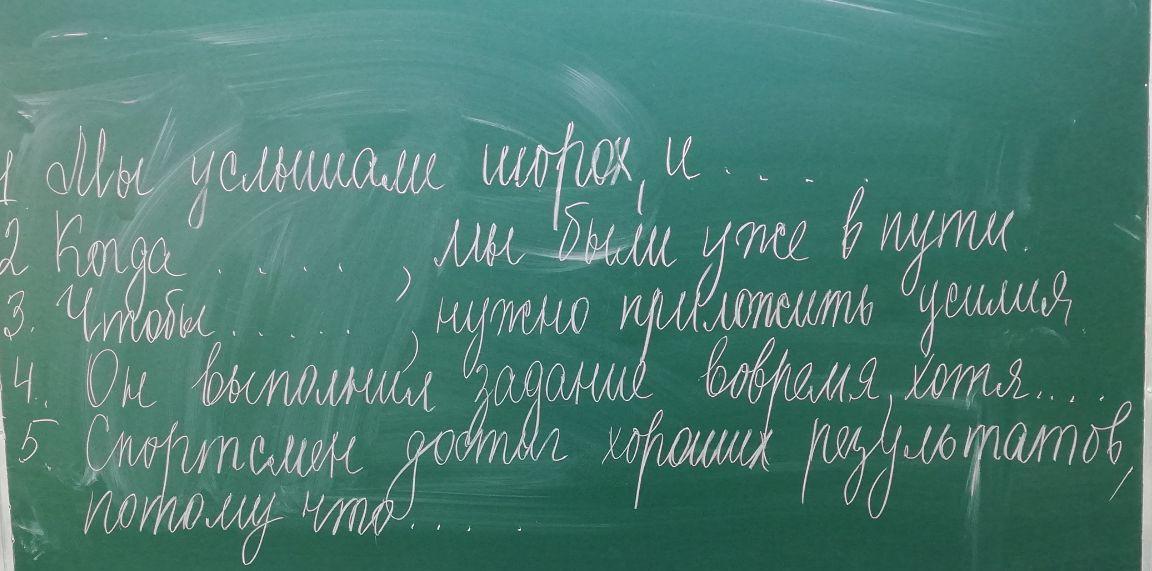 1 Мы услышали шорох, и . . . . .
2 Когда . . . . . , мы были уже в пути.
3. Чтобы . . . . . , нужно приложить усилия
4. Он выполнил задание вовремя, хотя....
5. Спортсмен достиг хороших результатов,
потому что . . . . .